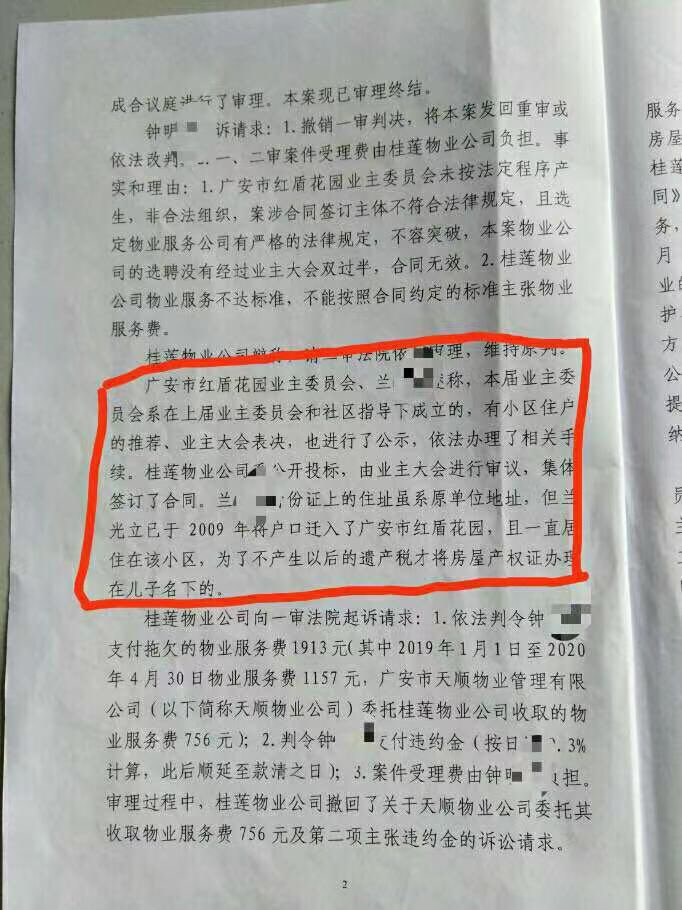 成合议庭进行了审理。本案现已审理终结。
钟明 诉请求：1.撤销一审判决，将本案发回重审或
依法改判 一、二审案件受理费由桂莲物业公司负担。事
实和理由：1.广安市红盾花园业主委员会未按法定程序产
生，非合法组织，案涉合同签订主体不符合法律规定，且选
定物业服务公司有严格的法律规定，不容突破，本案物业公
司的选聘没有经过业主大会双过半，合同无效。2.桂莲物业
公司物业服务不达标准，不能按照合同约定的标准主张物业
服务费。
桂莲物业公司辩称，请二审法院依 审理，维持原判。
广安市红盾花园业主委员会、兰 称，本届业主委
员会系在上届业主委员会和社区指导下成立的，有小区住户
的推荐、业主大会表决，也进行了公示，依法办理了相关手
续。桂莲物业公司 公开投标，由业主大会进行审议，集体
签订了合同。兰 份证上的住址虽系原单位地址，但兰
光立已于 2009 年将户口迁入了广安市红盾花园，且一直居
住在该小区，为了不产生以后的遗产税才将房屋产权证办理
在儿子名下的。
桂莲物业公司向一审法院起诉请求：1.依法判令钟
支付拖欠的物业服务费 1913 元(其中 2019 年 1 月 1 日至 2020
年 4 月 30 日物业服务费 1157 元，广安市天顺物业管理有限
公司（以下简称天顺物业公司）委托桂莲物业公司收取的物
业服务费 756 元)；2.判令钟 支付违约金（按日 .3%
计算，此后顺延至款清之日）；3.案件受理费由钟明 负担。
审理过程中，桂莲物业公司撤回了关于天顺物业公司委托其
收取物业服务费 756 元及第二项主张违约金的诉讼请求。
2
服务
房屋
桂莲
同》
务，
月
业的
护
方
公
纳
员
主